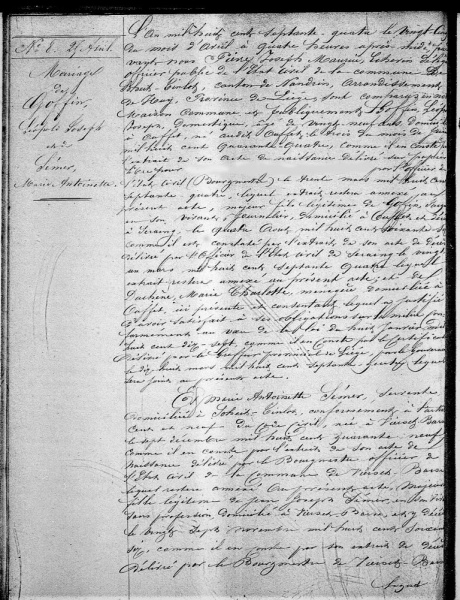 N° 8. 25 Avril.
Mariage
de
Goffin,
Léopold Joseph
et
Sémer,
Marie Antoinette.
L'An mil huit cent septante quatre le vingt cinq
du mois d'Avril à quatre heures après midi par
devant nous Pierre Joseph Échevin
officier public de l'État Civil de la commune de
Soheit-Tinlot, canton de Nandrin, Arrondissement
de Huy, Province de Liège, sont comparus en notre
Maison Commune et Goffin, Léopold
Joseph, Domestique, âgé de vingt neuf ans, domicilié
à Ouffet, né audit Ouffet, le trois du mois de
mil huit cent quarante quatre, comme il en conste
l'extrait de son acte de naissance délivré
par l'officier de
l'État civil (Bourgmestre) le trente mars mil huit cent
septante quatre, lequel extrait restera annexé au
présent acte, majeur fils légitime de Goffin,
en son vivant Journalier, domicilié à Ouffet et décédé
à Seraing, le quatre Août mil huit cent soixante
comme il est constaté par l'extrait de son acte de décès
délivré par l'Officier de l'État civil de Seraing le vingt
un mars, mil huit cent septante quatre lequel
extrait restera annexé au présent acte; et de
Duchêne, Marie Charlotte, ménagère domiciliée à
Ouffet, ici présente et consentante lequel a justifié
d'avoir satisfait à ses obligations sur la milice
conformément au vœu de la loi du huit Janvier mil
huit cent dix-sept, comme il en conste par le certificat
délivré par le Greffier provincial de Liège, pour le Gouverneur
le dix huit mars mil huit cent septante quatre lequel
sera joint au présent acte.
Et Marie Antoinette Sémer, servante
domiciliée à Soheit-Tinlot, conformément à l'article
cent et neuf du Code Civil, née à Vierset-Barse
le sept décembre mil huit cent quarante neuf
comme il en conste par l'extrait de son acte de
naissance délivré par le Bourgmestre officier de
l'État civil de la Commune de Vierset-Barse
lequel restera annexé au présent acte, majeure
fille légitime de Jean Joseph Sémer, en son vivant
sans profession domicilié à Vierset-Barse, et y décédé
le vingt sept novembre mil huit cent soixante
six, comme il en conste par son extrait de décès
délivré par le Bourgmestre de Vierset-Barse
lequel